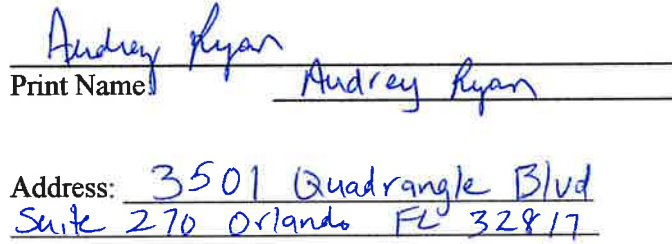 Audrey Ryan
Print Name: Audrey Ryan
Address: 3501 Quadrangle Blvd
Suite 270 Orlando FL 32817